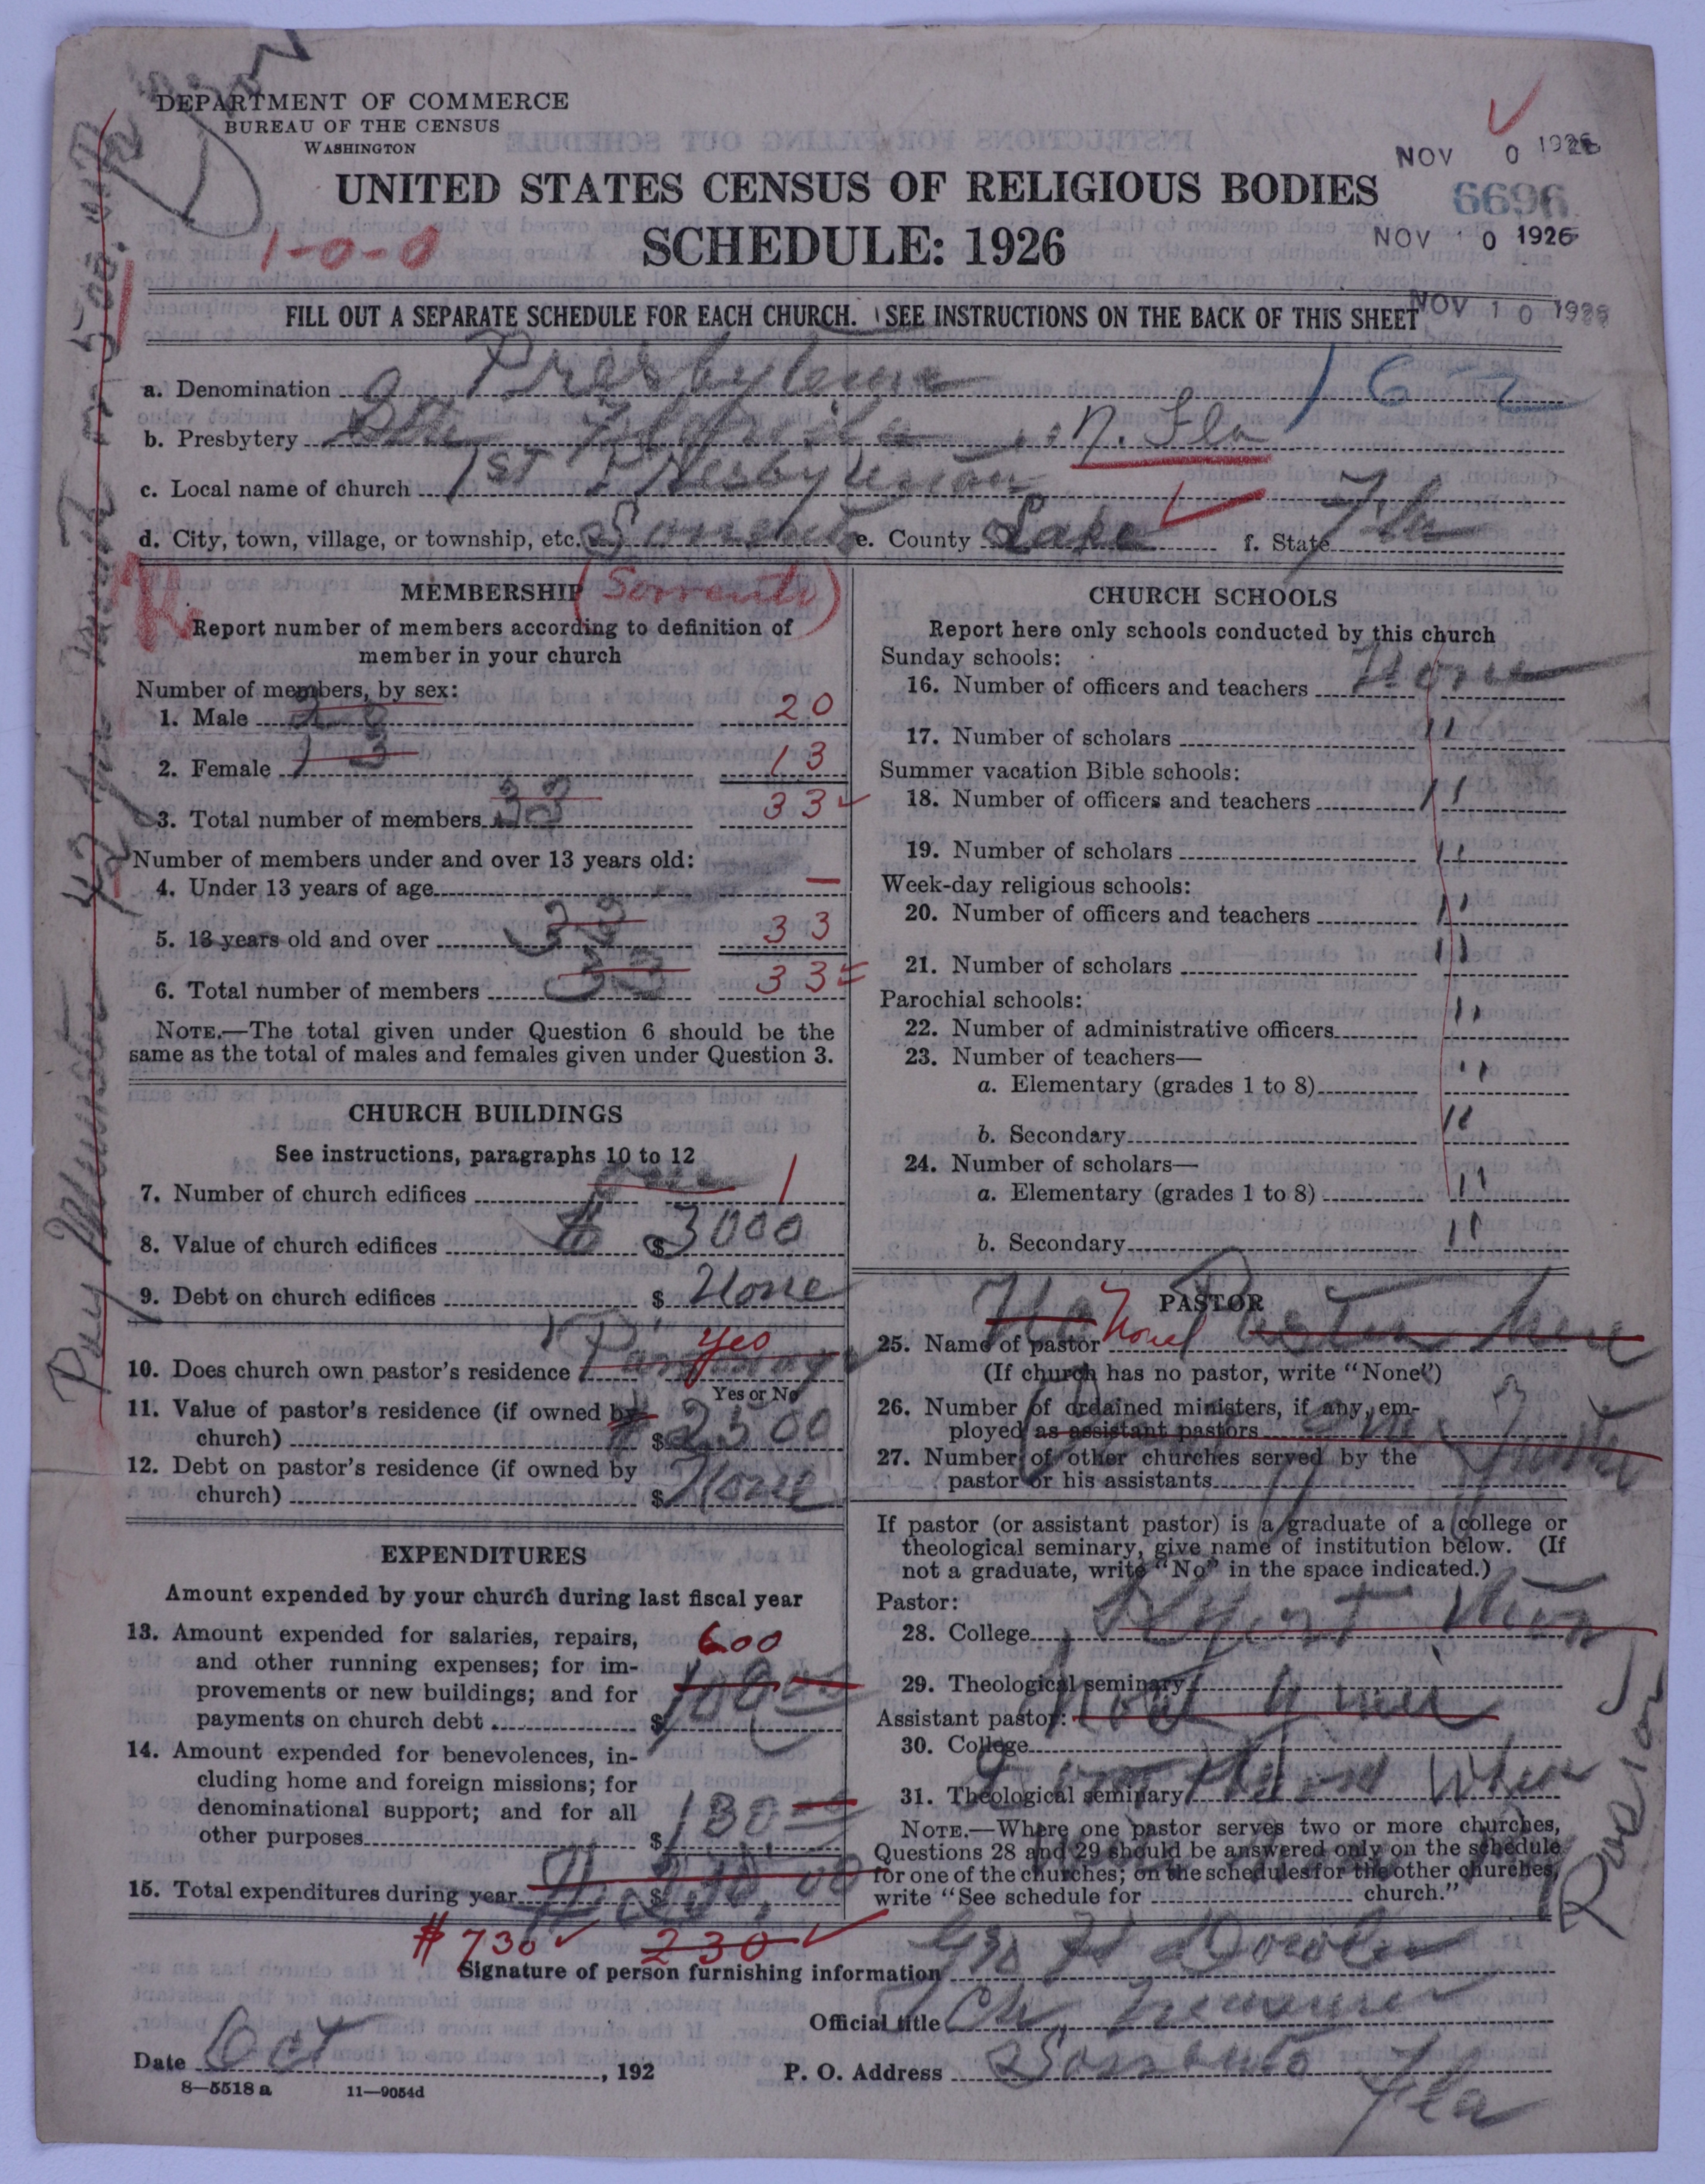 DEPARTMENT OF COMMERCE
BUREAU OF THE CENSUS
WASHINGTON
NOV 0 1926
UNITED STATES CENSUS OF RELIGIOUS BODIES
6696
1-0-0
SCHEDULE: 1926
NOV 10 1926
FILL OUT A SEPARATE SCHEDULE FOR EACH CHURCH. SEE INSTRUCTIONS ON THE BACK OF THIS SHEET
NOV 10 1926
a. Denomination Presbyterian 162
b. Presbytery Florida N. Fla
c. Local name of church 1st Presbyterian
d. City, town, village, or township, etc. Sorrento e. County Lake f. State Fla
MEMBERSHIP (Sorrento)
Report number of members according to definition of
member in your church
Number of members, by sex:
1. Male 20 20
2. Female 13 13
3. Total number of members 33 33
Number of members under and over 13 years old:
4. Under 13 years of age —
5. 13 years old and over 33 33
6. Total number of members 33 33
NOTE.—The total given under Question 6 should be the
same as the total of males and females given under Question 3.
CHURCH BUILDINGS
See instructions, paragraphs 10 to 12
7. Number of church edifices one 1
8. Value of church edifices $ 3000
9. Debt on church edifices $ None
10. Does church own pastor's residence yes
Yes or No
11. Value of pastor's residence (if owned by
church) $ 2500
12. Debt on pastor's residence (if owned by
church) $ None
EXPENDITURES
Amount expended by your church during last fiscal year
13. Amount expended for salaries, repairs,
and other running expenses; for im-
provements or new buildings; and for
payments on church debt $ 100 00 600
14. Amount expended for benevolences, in-
cluding home and foreign missions; for
denominational support; and for all
other purposes $ 130
15. Total expenditures during year $ 230.00
$ 730 230
CHURCH SCHOOLS
Report here only schools conducted by this church
Sunday schools:
16. Number of officers and teachers None
17. Number of scholars "
Summer vacation Bible schools:
18. Number of officers and teachers "
19. Number of scholars "
Week-day religious schools:
20. Number of officers and teachers "
21. Number of scholars "
Parochial schools:
22. Number of administrative officers "
23. Number of teachers—
a. Elementary (grades 1 to 8) "
b. Secondary "
24. Number of scholars—
a. Elementary (grades 1 to 8) "
b. Secondary "
PASTOR
25. Name of pastor No Pastor here None
(If church has no pastor, write "None")
26. Number of ordained ministers, if any, em-
ployed as assistant pastors
27. Number of other churches served by the
pastor or his assistants
If pastor (or assistant pastor) is a graduate of a college or
theological seminary, give name of institution below. (If
not a graduate, write "No" in the space indicated.)
Pastor:
28. College
29. Theological seminary
Assistant pastor:
30. College
31. Theological seminary
NOTE.—Where one pastor serves two or more churches,
Questions 28 and 29 should be answered only on the schedule
for one of the churches; on the schedules for the other churches,
write "See schedule for church."
Signature of person furnishing information
Official title Ch Treasurer
Date Oct , 192 P. O. Address Sorrento Fla
8—5518 a 11—9054d